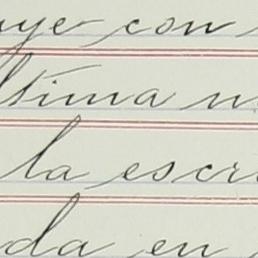 uye con
ltima n
la escri
da en